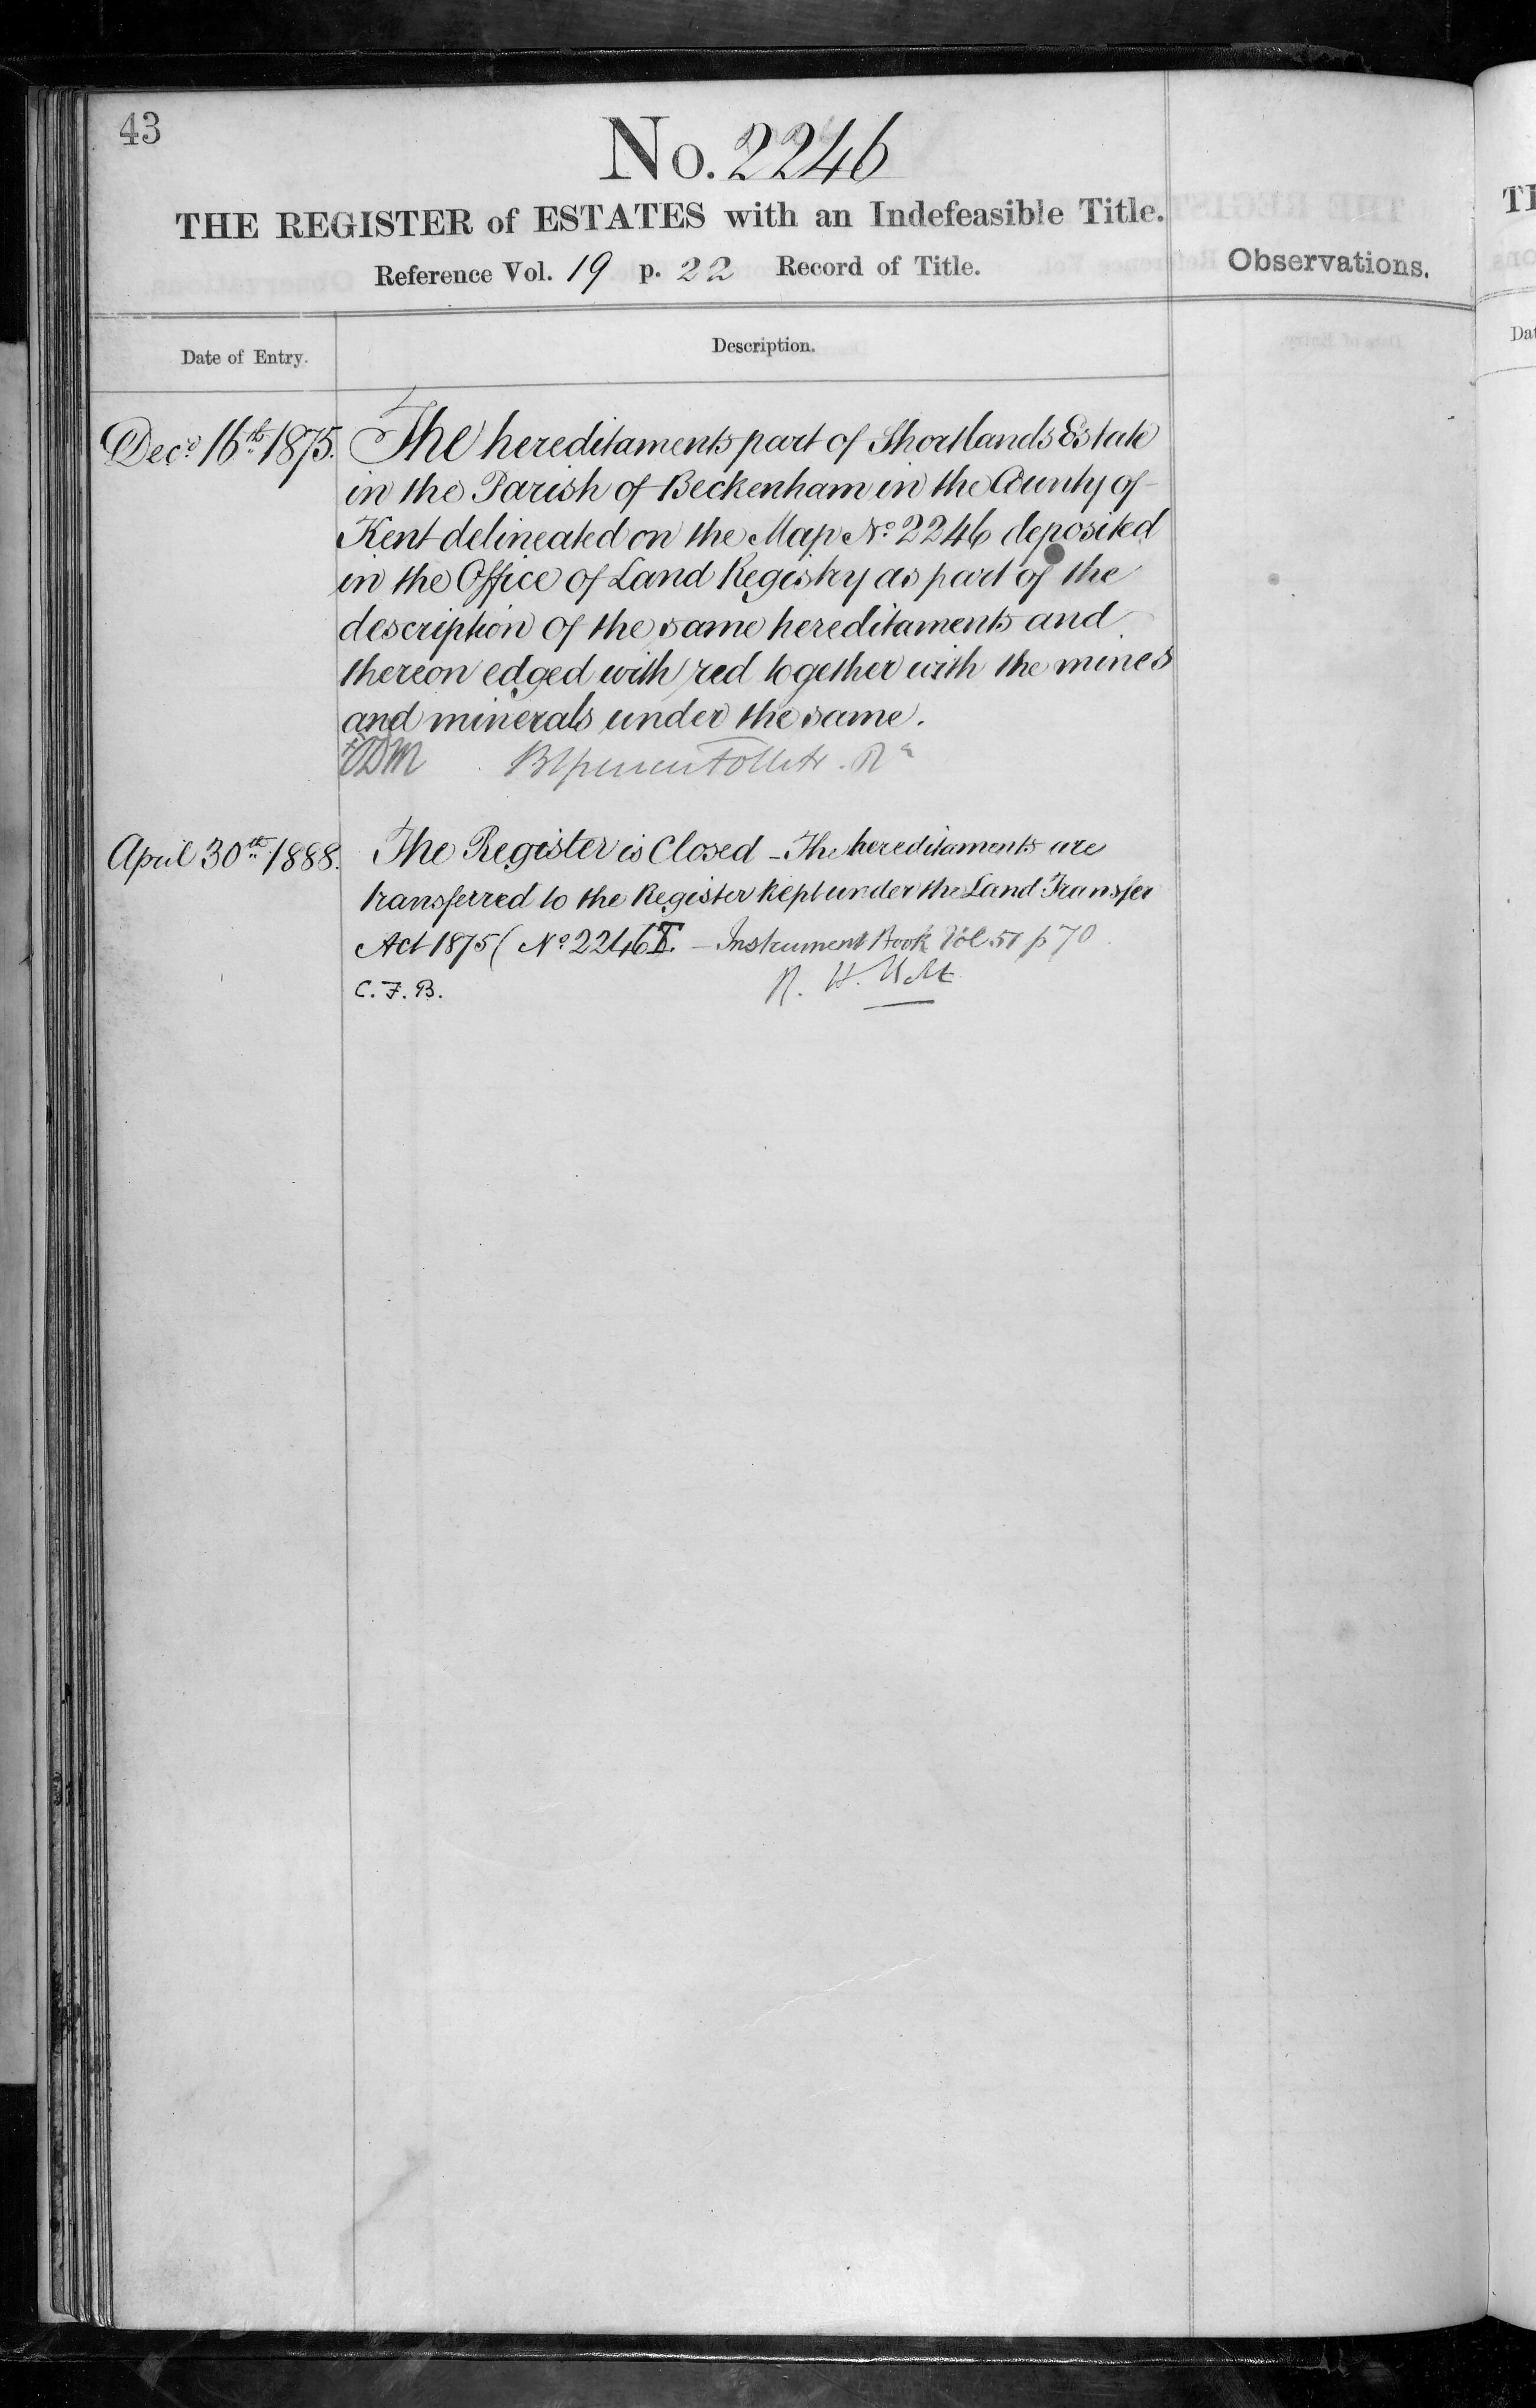 43
No. 2246
THE REGISTER of ESTATES with an Indefeasible Title.
Reference Vol. 19 p. 22 Record of Title.
Observations.
Date of Entry.
Description.
Decr 16th 1875.
The hereditaments part of Shortlands Estate
in the Parish of Beckenham in the County of
Kent delineated on the Map No 2246 deposited
in the Office of Land Registry as part of the
description of the same hereditaments and
thereon edged with red together with the mines
and minerals under the same.
April 30th 1888.
The Register is Closed - The hereditaments are
transferred to the Register kept under the Land Transfer
Act 1875 ( No 2246 - Instrument Book Vol 51 p 70
C. F. B.
R. H. Holt